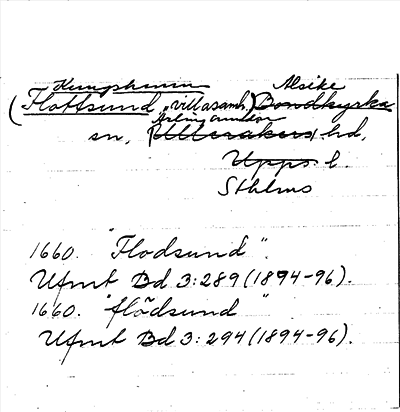 Kungshamn Alsike
(Flottsund, villasamh.) Bondkyrka
Ärlinghundra
sn, Ulleråkers hd,
Upps. l.
Sthlms
1660. "Flodsund".
Ufmt Bd 3:289 (1894-96).
1660. "flödsund"
Ufmt Bd 3:294 (1894-96).